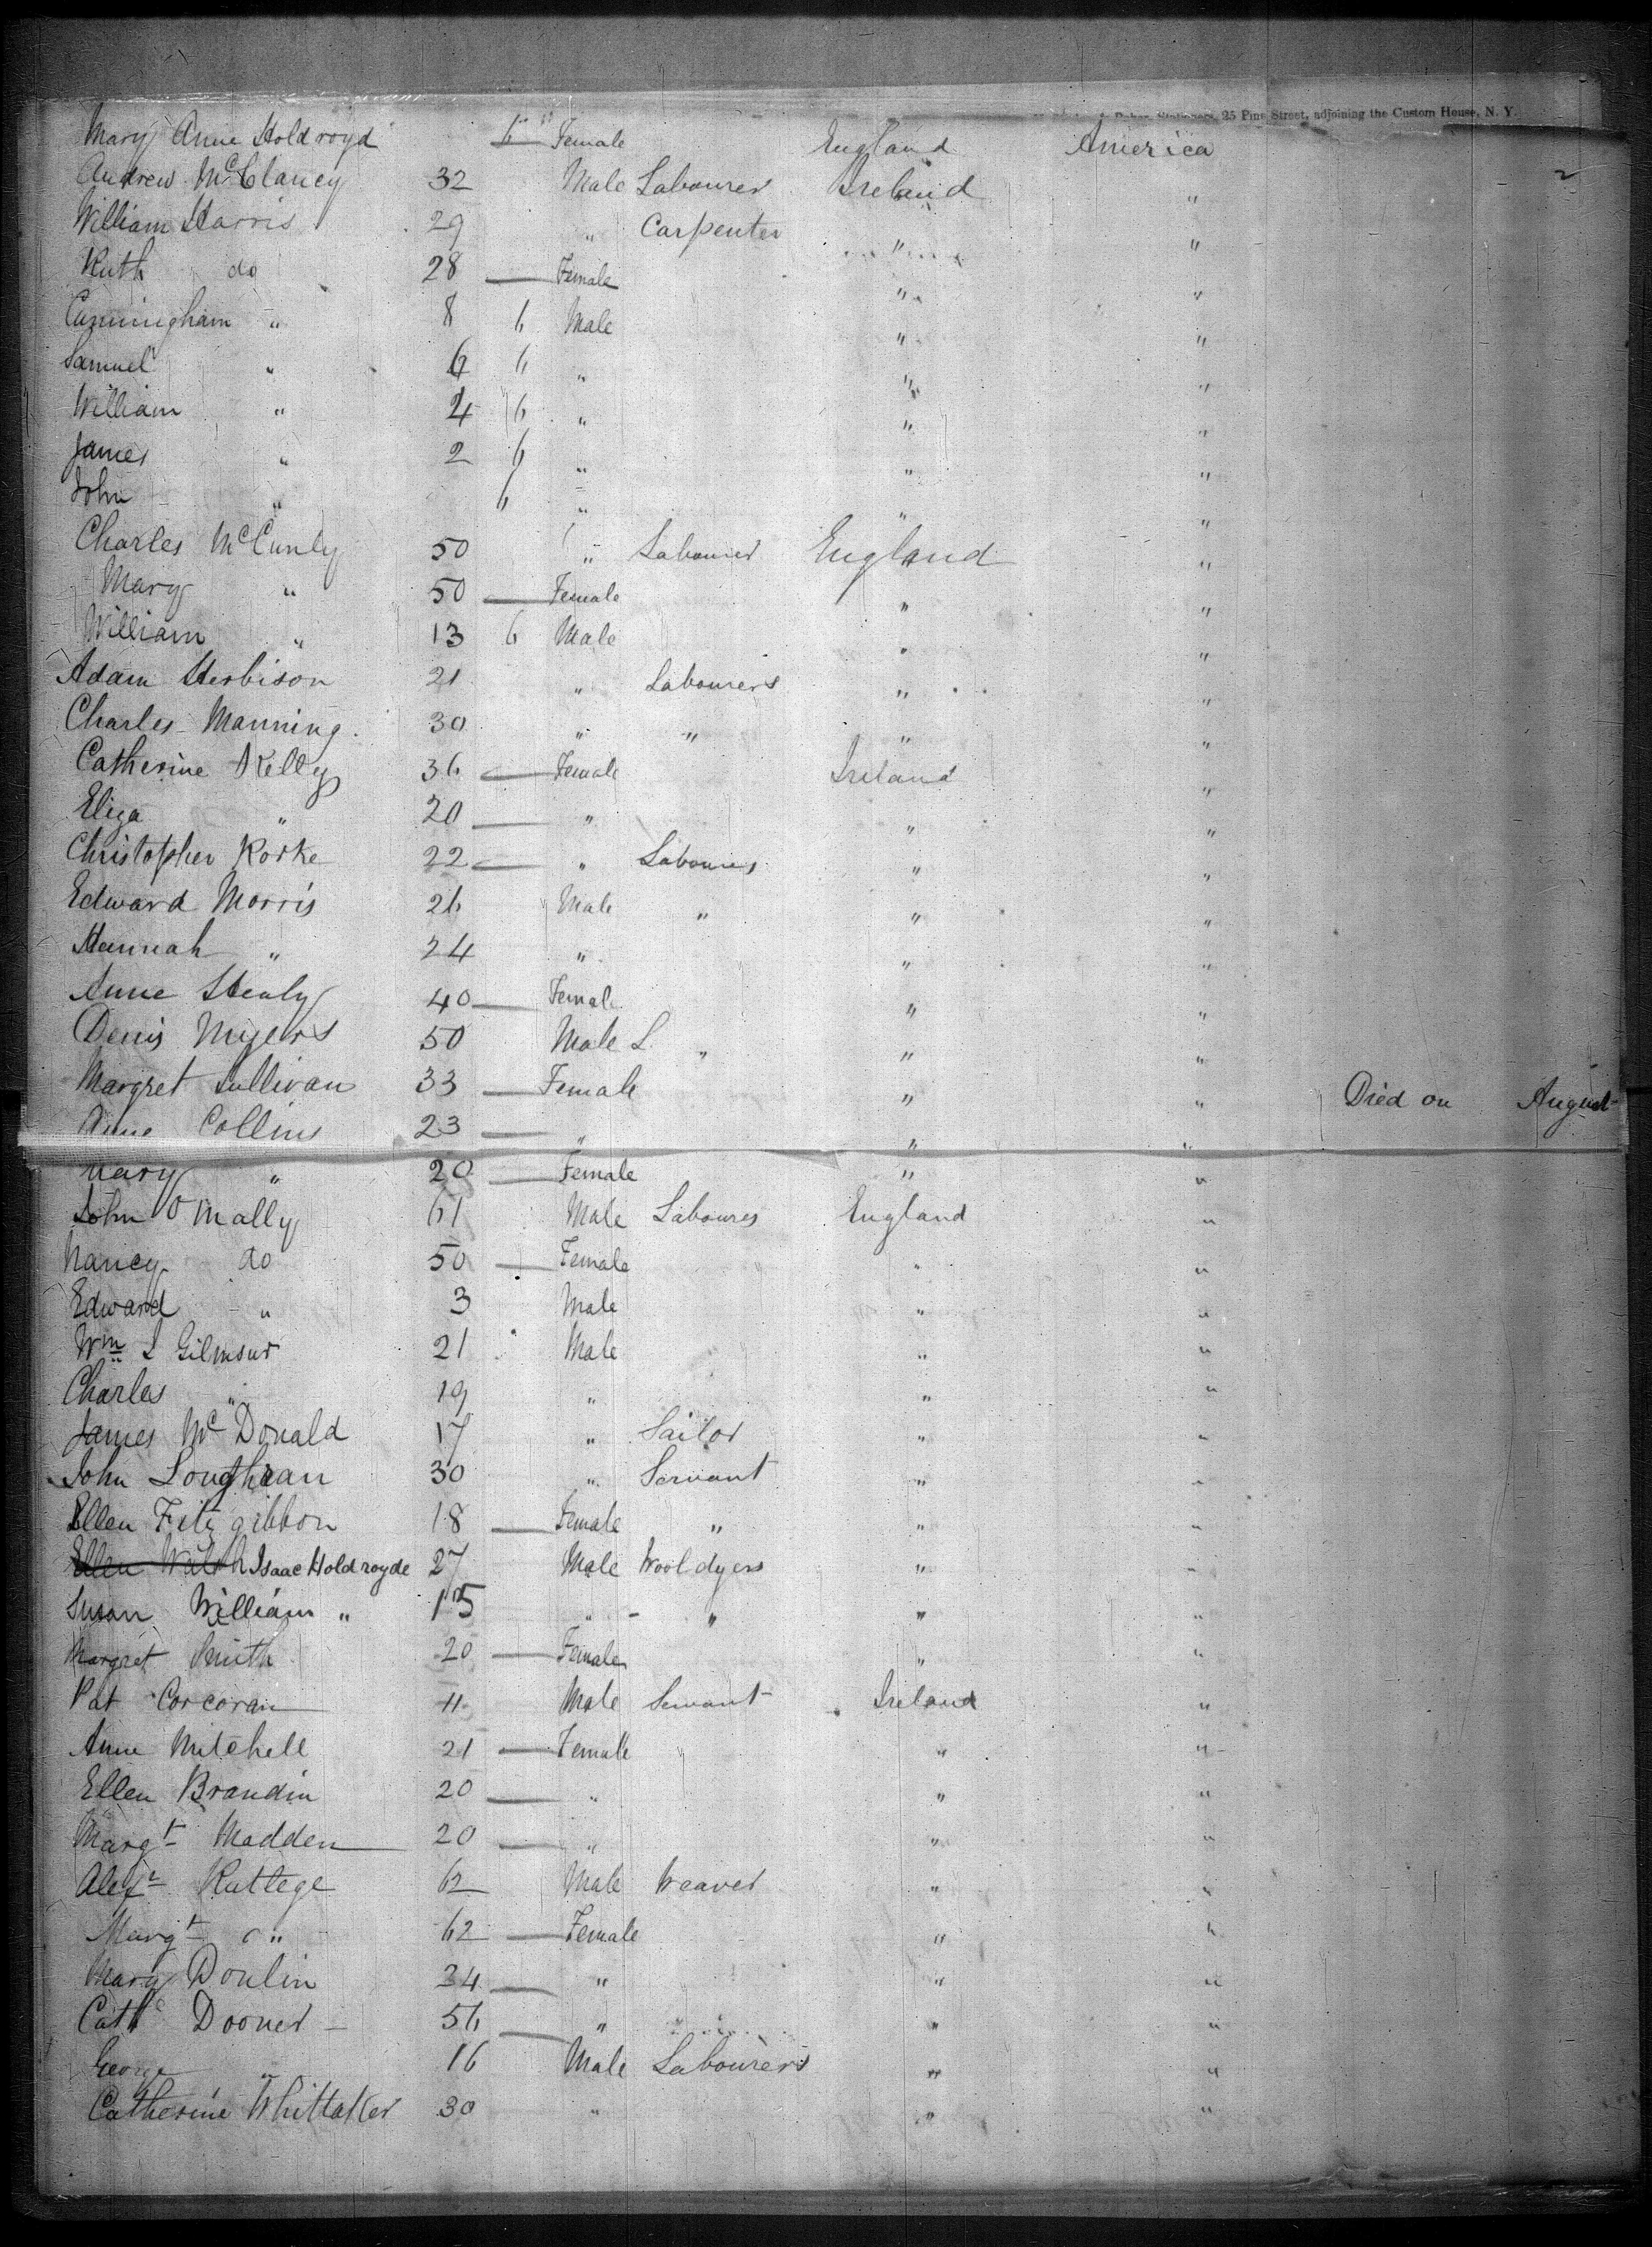 Stationers, 25 Pine Street, adjoining the Custom House, N. Y.
Mary Anne Holdroyd 6 " Female England America
2
Andrew McClancy 32 Male Labourer Ireland "
William Harris 29 " Carpenter " "
Ruth do 28 — Female " "
Cunningham " 8 6 Male " "
Samuel " 6 6 " " "
William " 4 6 " " "
James " 2 6 " " "
John " 6 " " "
Charles McCunly 50 " Labourer England "
Mary " 50 — Female " "
William " 13 6 Male " "
Adam Herbison 21 " Labourers " "
Charles Manning 30 " " " "
Catherine Kelly 36 — Female Ireland "
Eliza " 20 — " " "
Christopher Rorke 22 — " Labourers " "
Edward Morris 26 Male " " "
Hannah " 24 " " "
Anne Healy 40 — Female " "
Denis Myers 50 Male L " " "
Margret Sullivan 33 — Female " " Died on August
Anne Collins 23 — " " "
Mary " 20 — Female " "
John O Mally 61 Male Labourer England "
Nancy do 50 — Female " "
Edward " 3 Male " "
Wm I Gilmour 21 Male " "
Charles " 19 " " "
James McDonald 17 " Sailor " "
John Loughran 30 " Servant " "
Ellen Fitzgibbon 18 — Female " " "
Ellen Walsh Isaac Holdroyde 27 Male Wool dyers " "
Susan William " 15 " - " " "
Margret Smith 20 — Female " "
Pat Corcoran 11 Male Servant Ireland "
Anne Mitchell 21 — Female " "
Ellen Brandin 20 — " " "
Margt Madden 20 — " " "
Alexr Ruttege 62 Male Weaver " "
Margt " 62 — Female " "
Mary Doulin 34 — " " "
Cath Dooner 56 — " " "
George " 16 Male Labourers " "
Catherine Whittaker 30 " " "